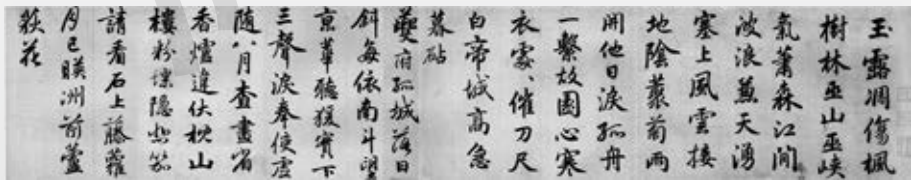 玉露凋傷楓
樹林巫山巫峽
氣蕭森江間
波浪兼天湧
塞上風雲接
地陰叢菊兩
開他日淚孤舟
一繫故園心寒
衣處〻催刀尺
白帝城高急
暮砧
夔府孤城落日
斜每依南斗望
京華聽猨實下
三聲淚奉使虛
隨八月查畫省
香爐違伏枕山
樓粉堞隱悲笳
請看石上藤蘿
月已暎洲前蘆
荻花